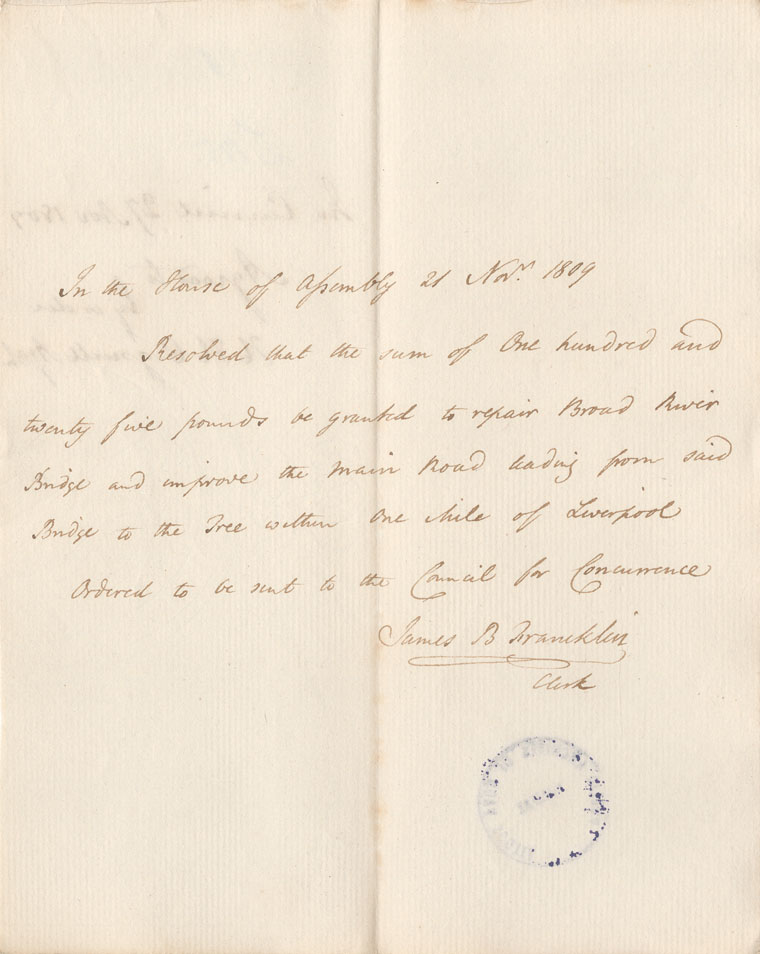 In the House of Assembly 21 Novr. 1809
Resolved that the sum of One hundred and
twenty five pounds be granted to repair Broad River
Bridge and improve the Main Road leading from said
Bridge to the Tree within One Mile of Liverpool
Ordered to be sent to the Council for Concurrence
James B Francklin
Clerk